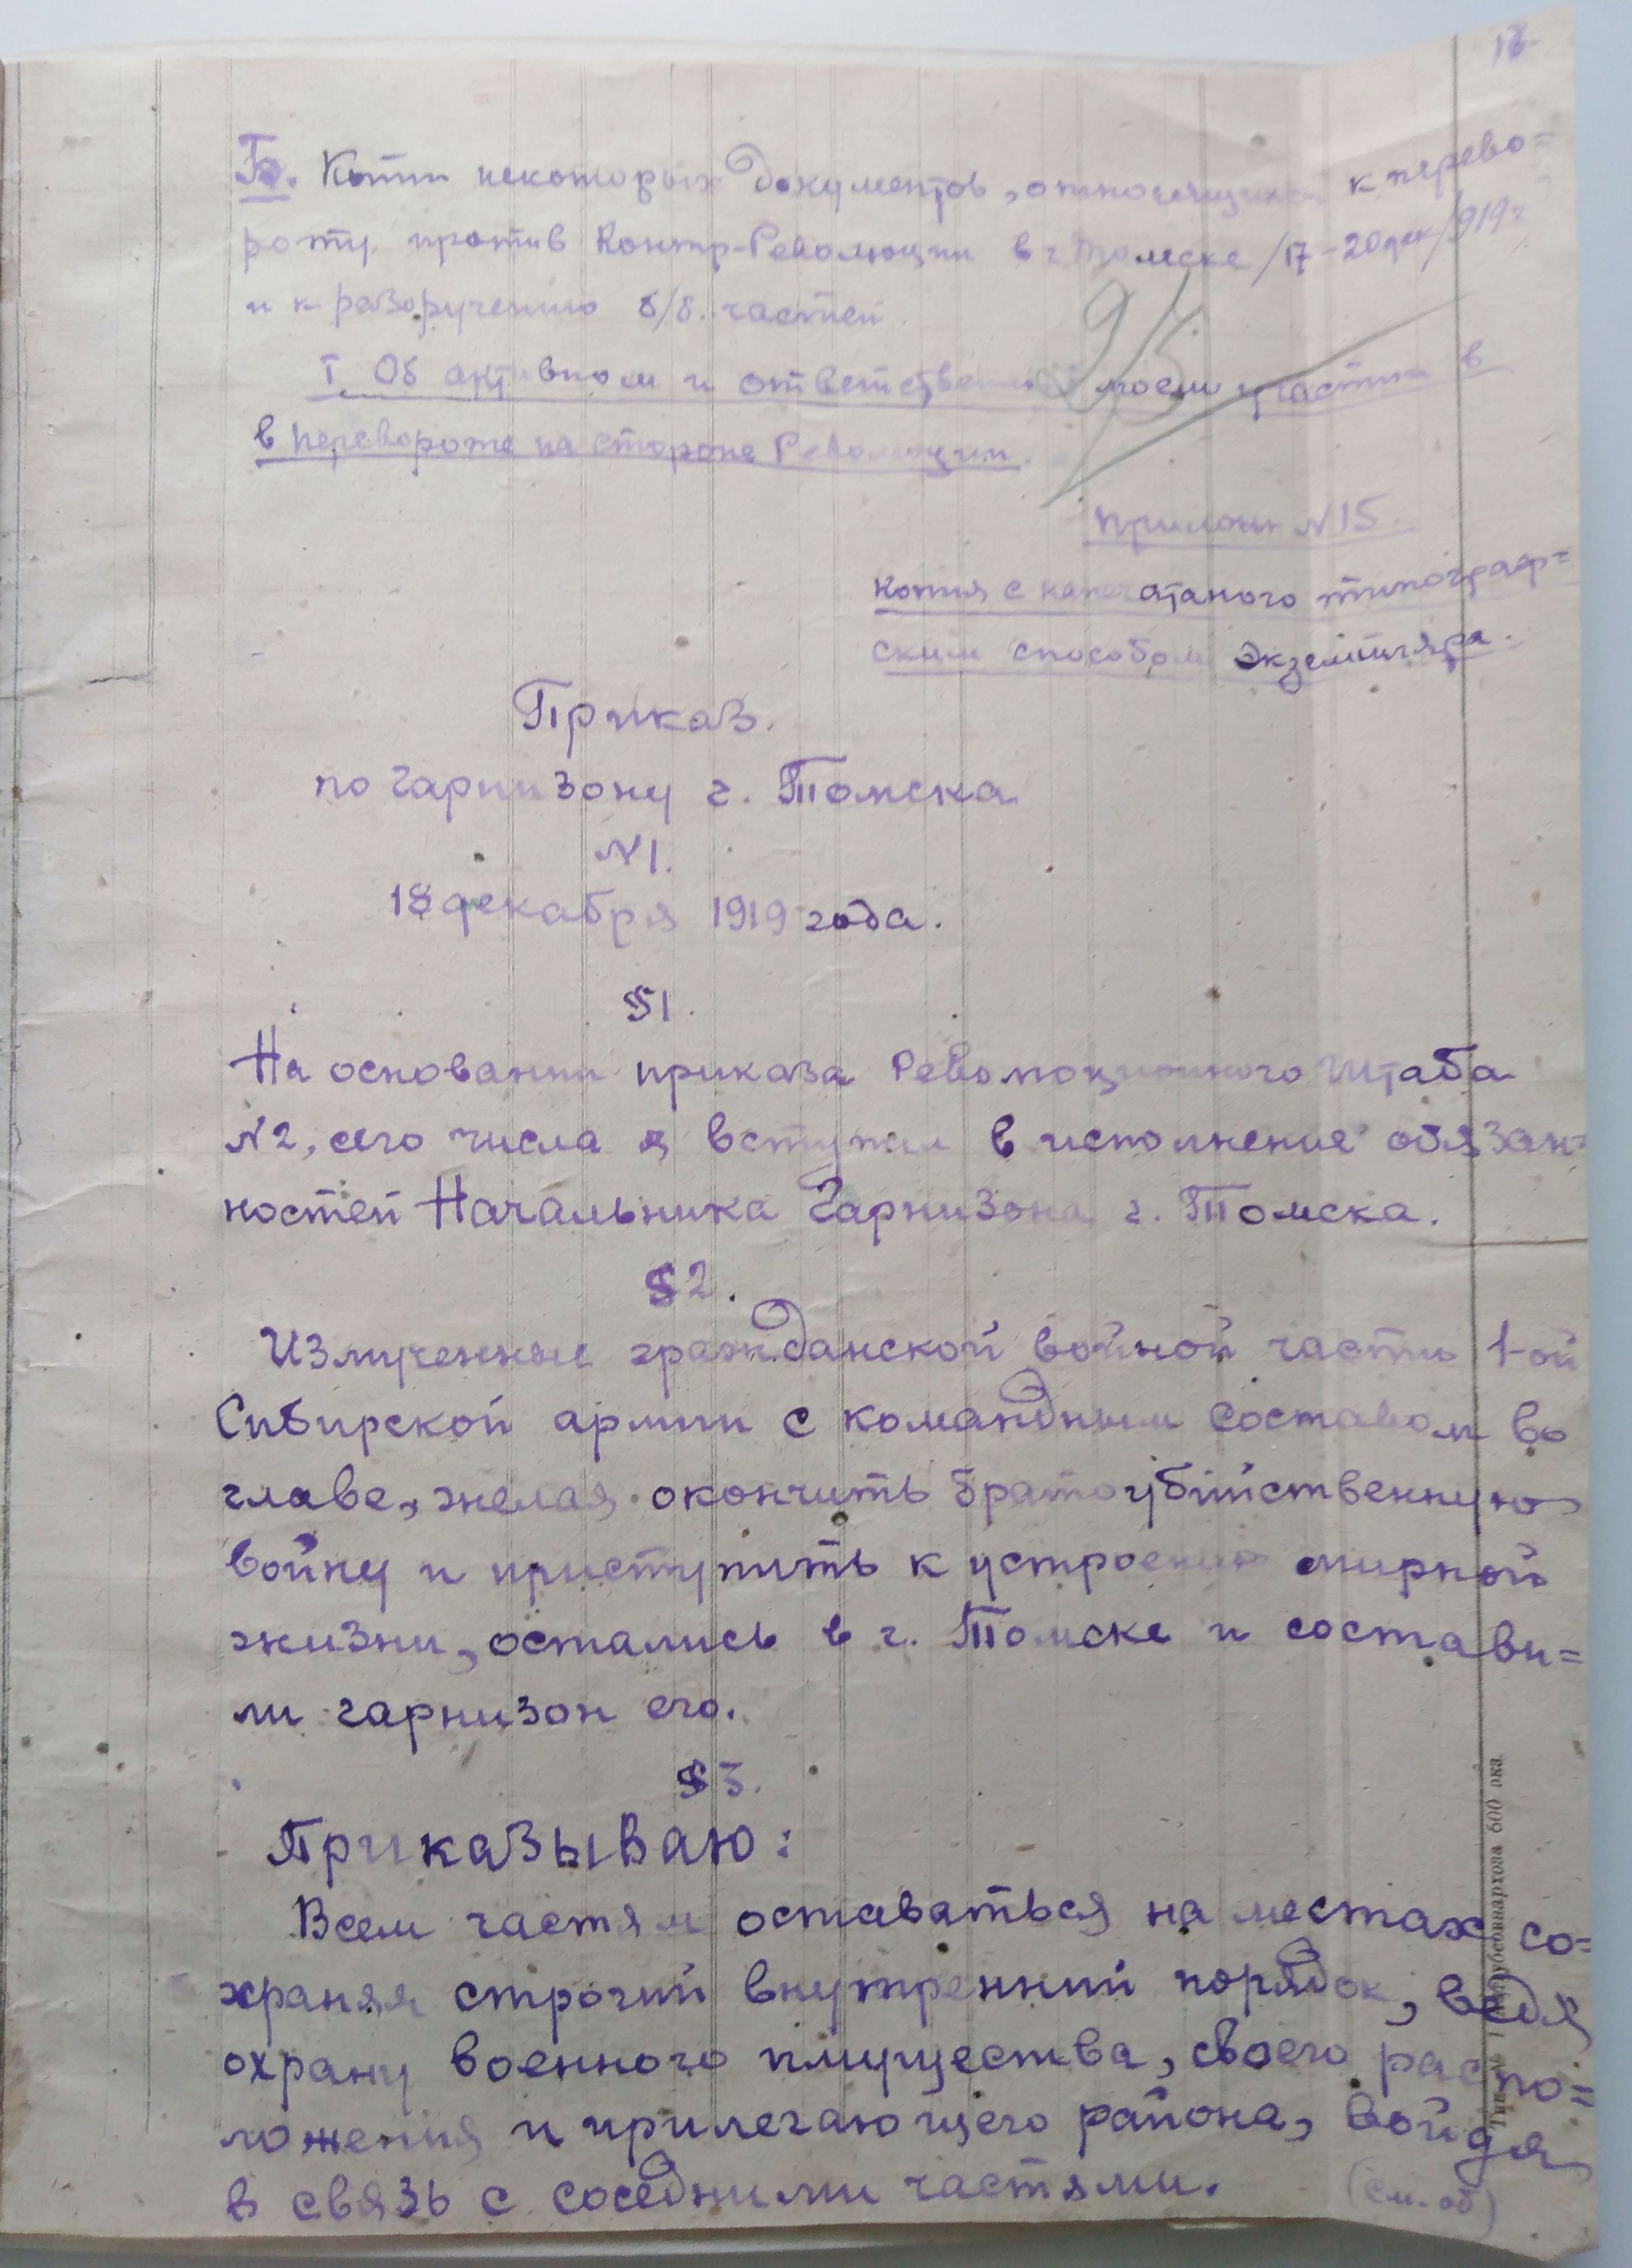 18
Б. Копии некоторых документов, относящихся к перево=
роту против Контр-Революции в г Томске /17-20 дек/919г
и к разоружению б/б. частей.
I. Об активном и ответственном моем участии в
в перевороте на стороне Революции.
95
Прилож N15.
Копия с напечатаного типограф=
ским способом экземпляра.
Приказ.
по гарнизону г. Томска
N1.
18 декабря 1919 года.
§1.
На основании приказа Революционного Штаба
N2, сего числа я вступил в исполнение обязан=
ностей Начальника Гарнизона г. Томска.
§2.
Измученные гражданской войной части 1-ой
Сибирской армии с командным составом во
главе, желая окончить братоубийственную
войну и приступить к устроению мирной
жизни, остались в г. Томске и состави=
ли гарнизон его.
§3.
Приказываю:
Всем частям оставаться на местах со=
храняя строгий внутренний порядок, ведя
охрану военного имущества, своего распо=
ложения и прилегающего района, войдя
в связь с соседними частями.
(см. об)
600 экз.